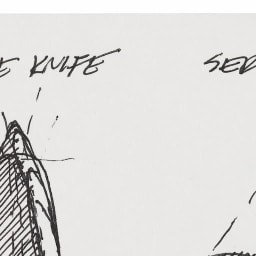 E KNIFE SER